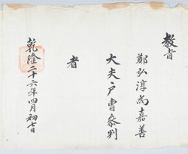 教旨
鄭弘淳爲嘉善
大夫戶曹參判
者
乾隆二十六年四月初七日